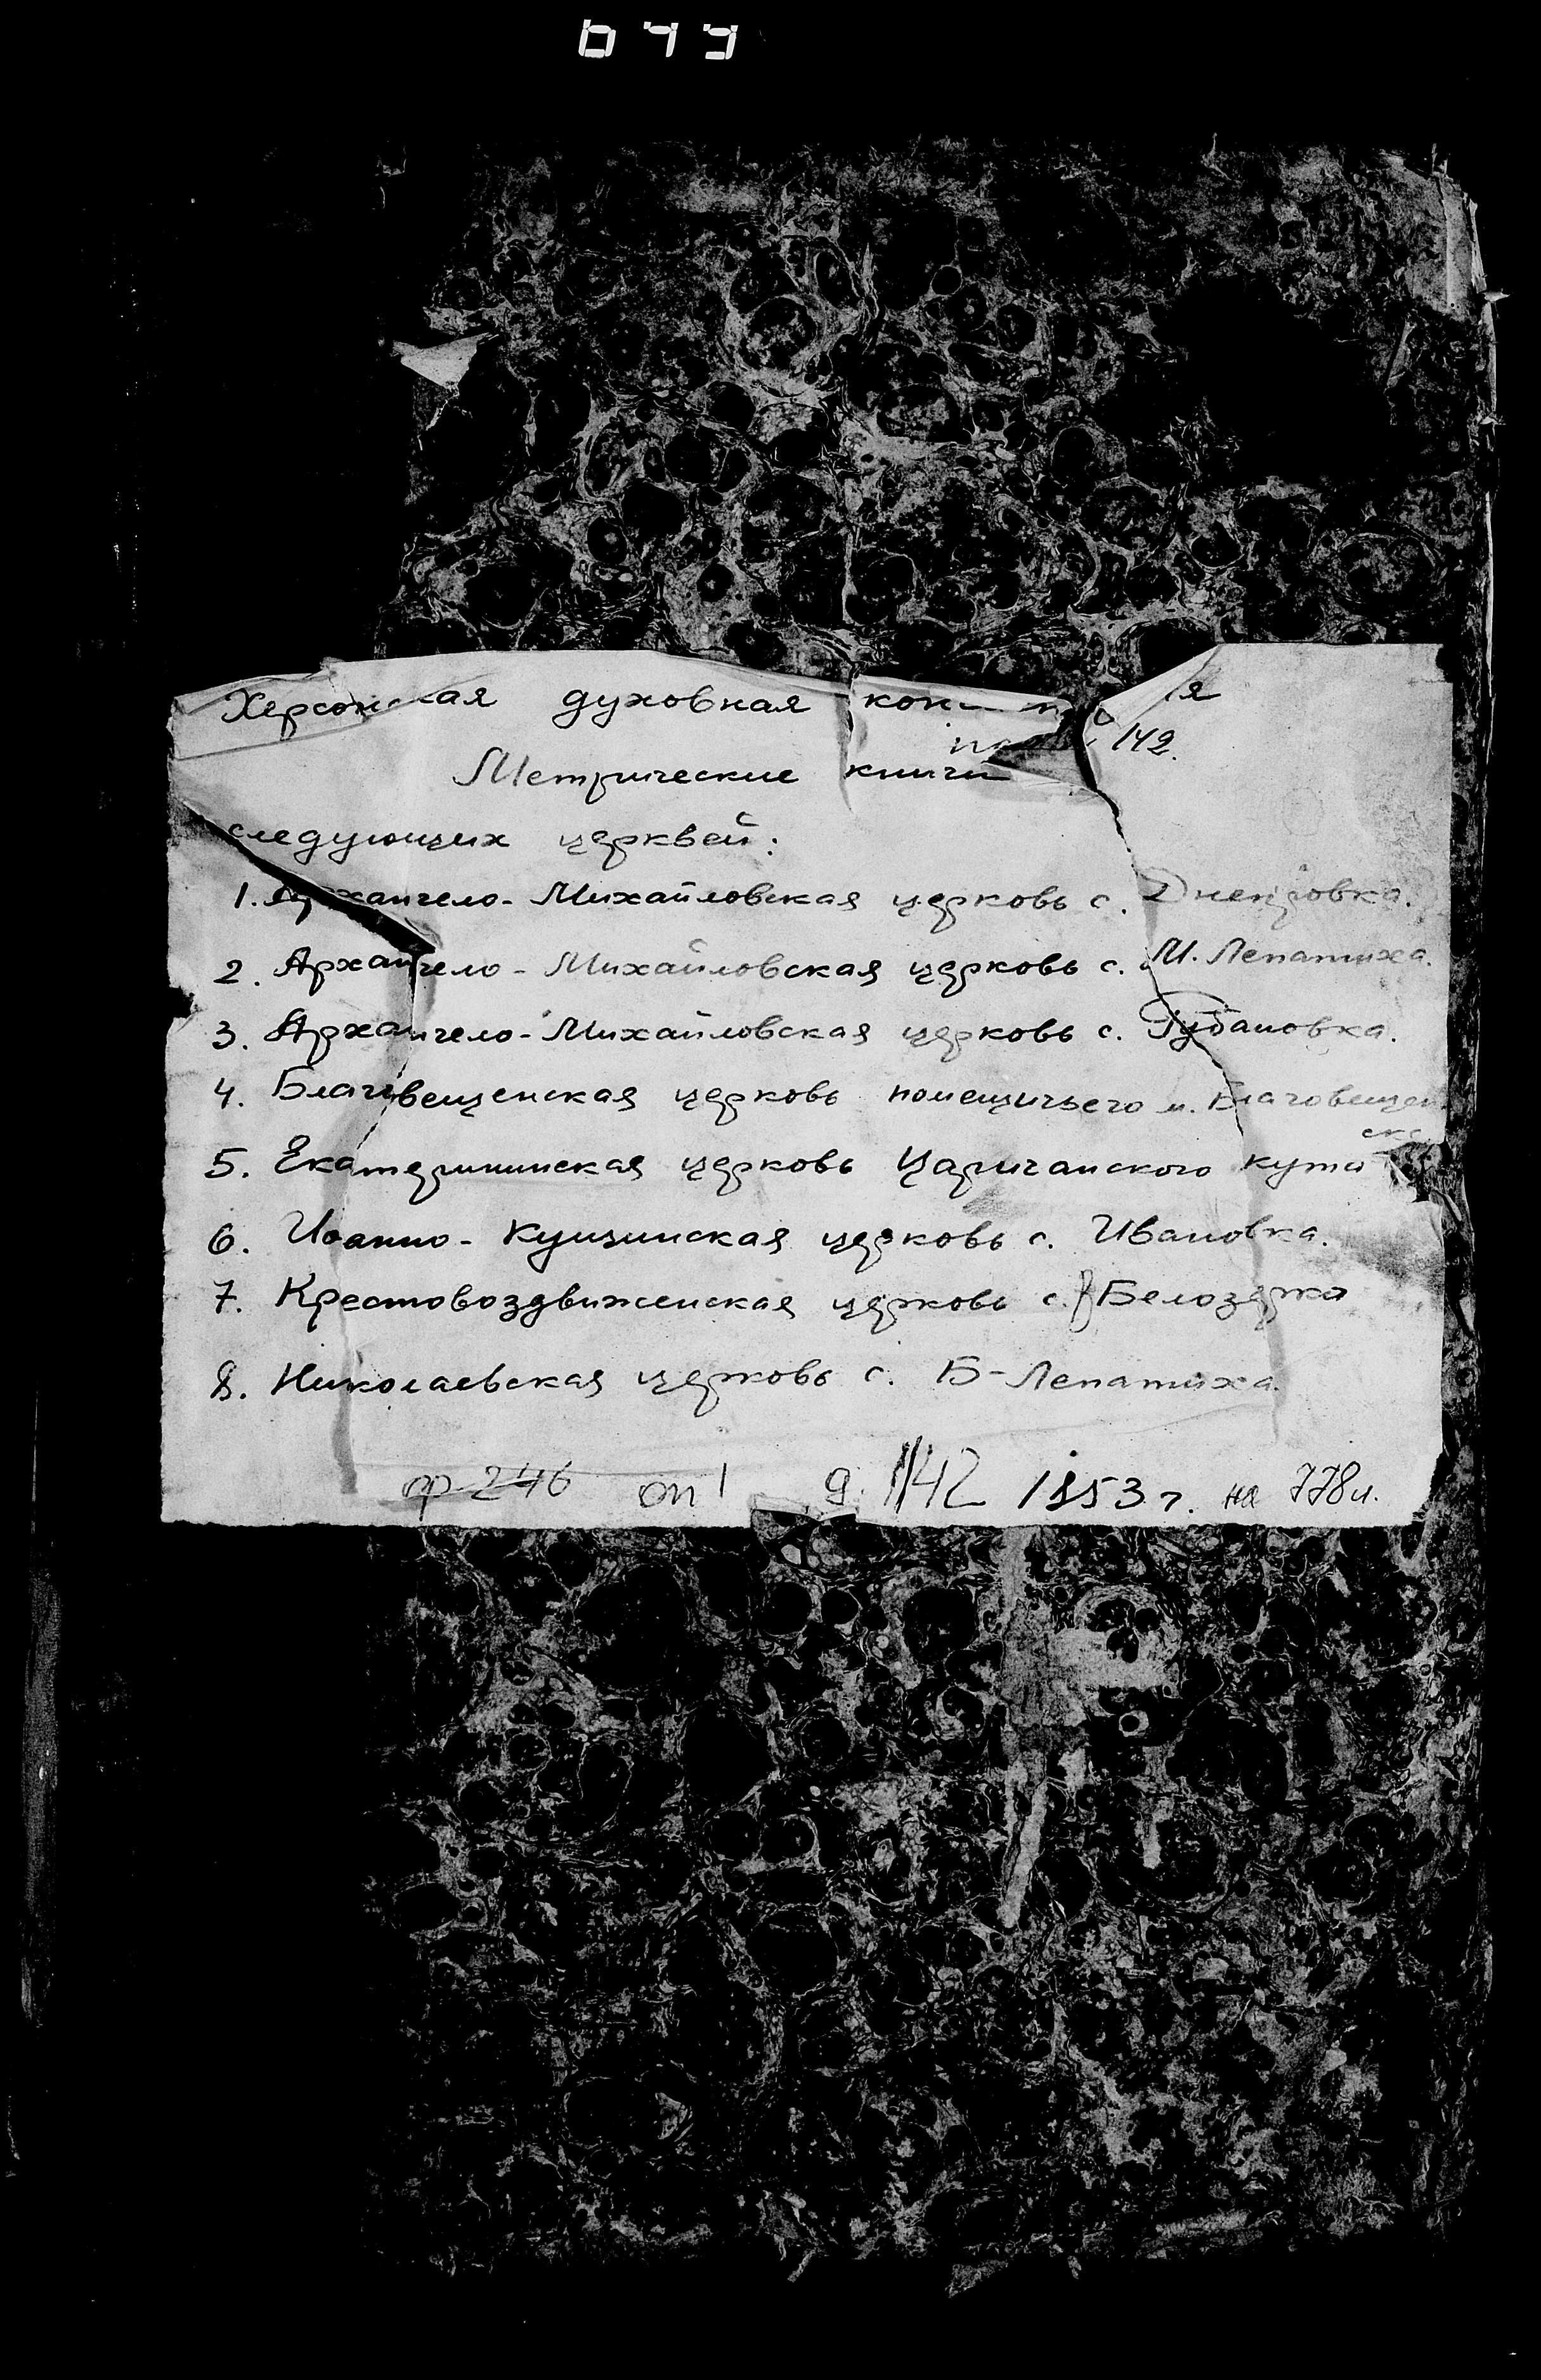 Херсонская духовная
142.
Метрические книги
следующих церквей:
1. Архангело-Михайловская церковь с. Днепровка.
2. Архангело-Михайловская церковь с. М. Лепатиха.
3. Архангело-Михайловская церковь с. Губановка.
4. Благовещенская церковь помещичьего и. Благовещен
ско
5. Екатерининская церковь Царичанского кута
6. Иоанно-Кушинская церковь с. Ивановка.
7. Крестовоздвиженская церковь с. Белозерка
8. Николаевская церковь с. Б-Лепатиха.
ф 246 оп 1 д. 142 1853 г. на 778 л.